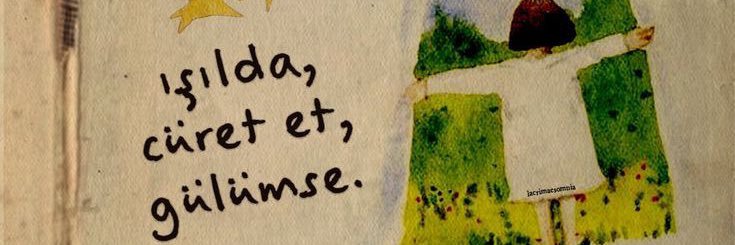 ışılda,
cüret et,
gülümse.
lacrimaesomnia